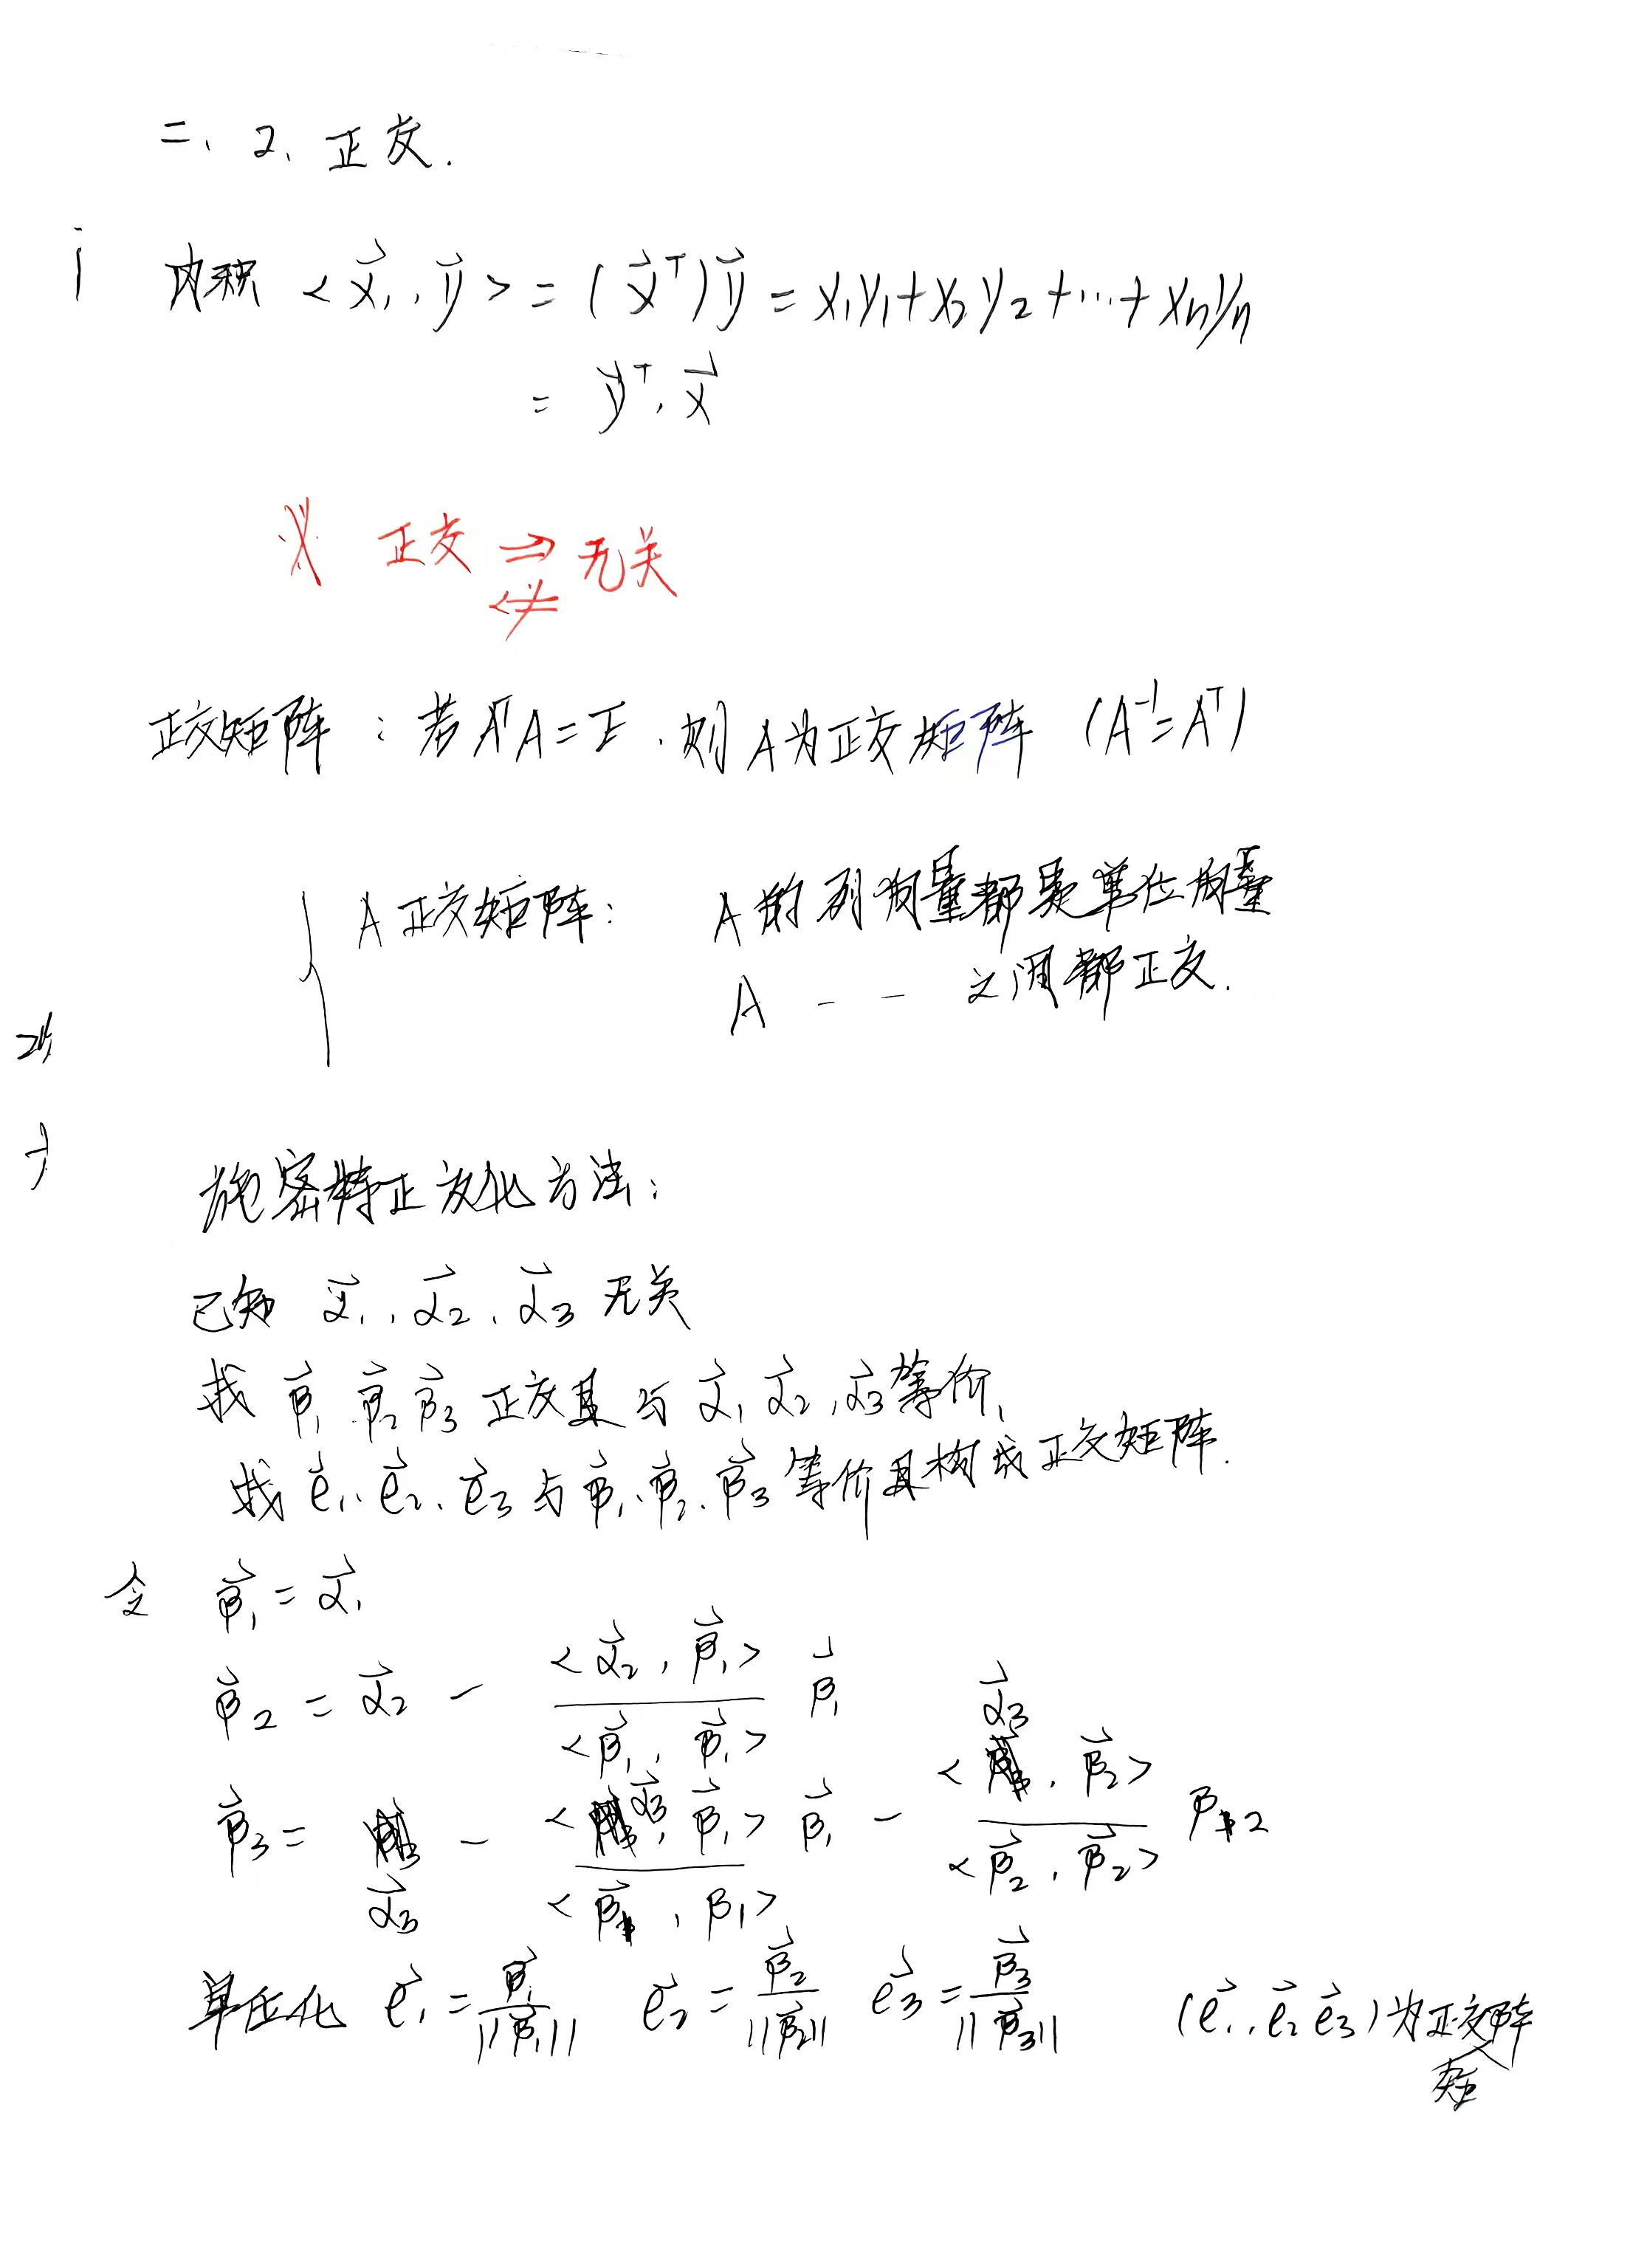 二、2、正交.
内积 <x⃗, y⃗> = (x⃗ᵀ)y⃗ = x₁y₁+x₂y₂+…+xₙyₙ
= y⃗ᵀ·x⃗
※ 正交 ⇒ 无关
⇍
正交矩阵：若AᵀA=E，则A为正交矩阵 (A⁻¹=Aᵀ)
{ A正交矩阵： A的列向量都是单位向量
A - - 之间都正交.
施密特正交化方法：
已知 α⃗₁, α⃗₂, α⃗₃ 无关
找 β⃗₁ β⃗₂ β⃗₃ 正交且与 α⃗₁ α⃗₂, α⃗₃等价,
找 e⃗₁, e⃗₂, e⃗₃ 与 β⃗₁, β⃗₂, β⃗₃ 等价且构成正交矩阵.
令 β⃗₁ = α⃗₁
β⃗₂ = α⃗₂ - <α⃗₂, β⃗₁>/<β⃗₁, β⃗₁> β⃗₁
β⃗₃ = α⃗₃ - <α⃗₃, β⃗₁>/<β⃗₁, β₁> β⃗₁ - <α⃗₃, β⃗₂>/<β⃗₂, β⃗₂> β₂
单位化 e⃗₁ = β⃗₁/||β⃗₁|| e⃗₂ = β⃗₂/||β⃗₂|| e⃗₃ = β⃗₃/||β⃗₃|| (e⃗₁, e⃗₂ e⃗₃)为正交矩阵